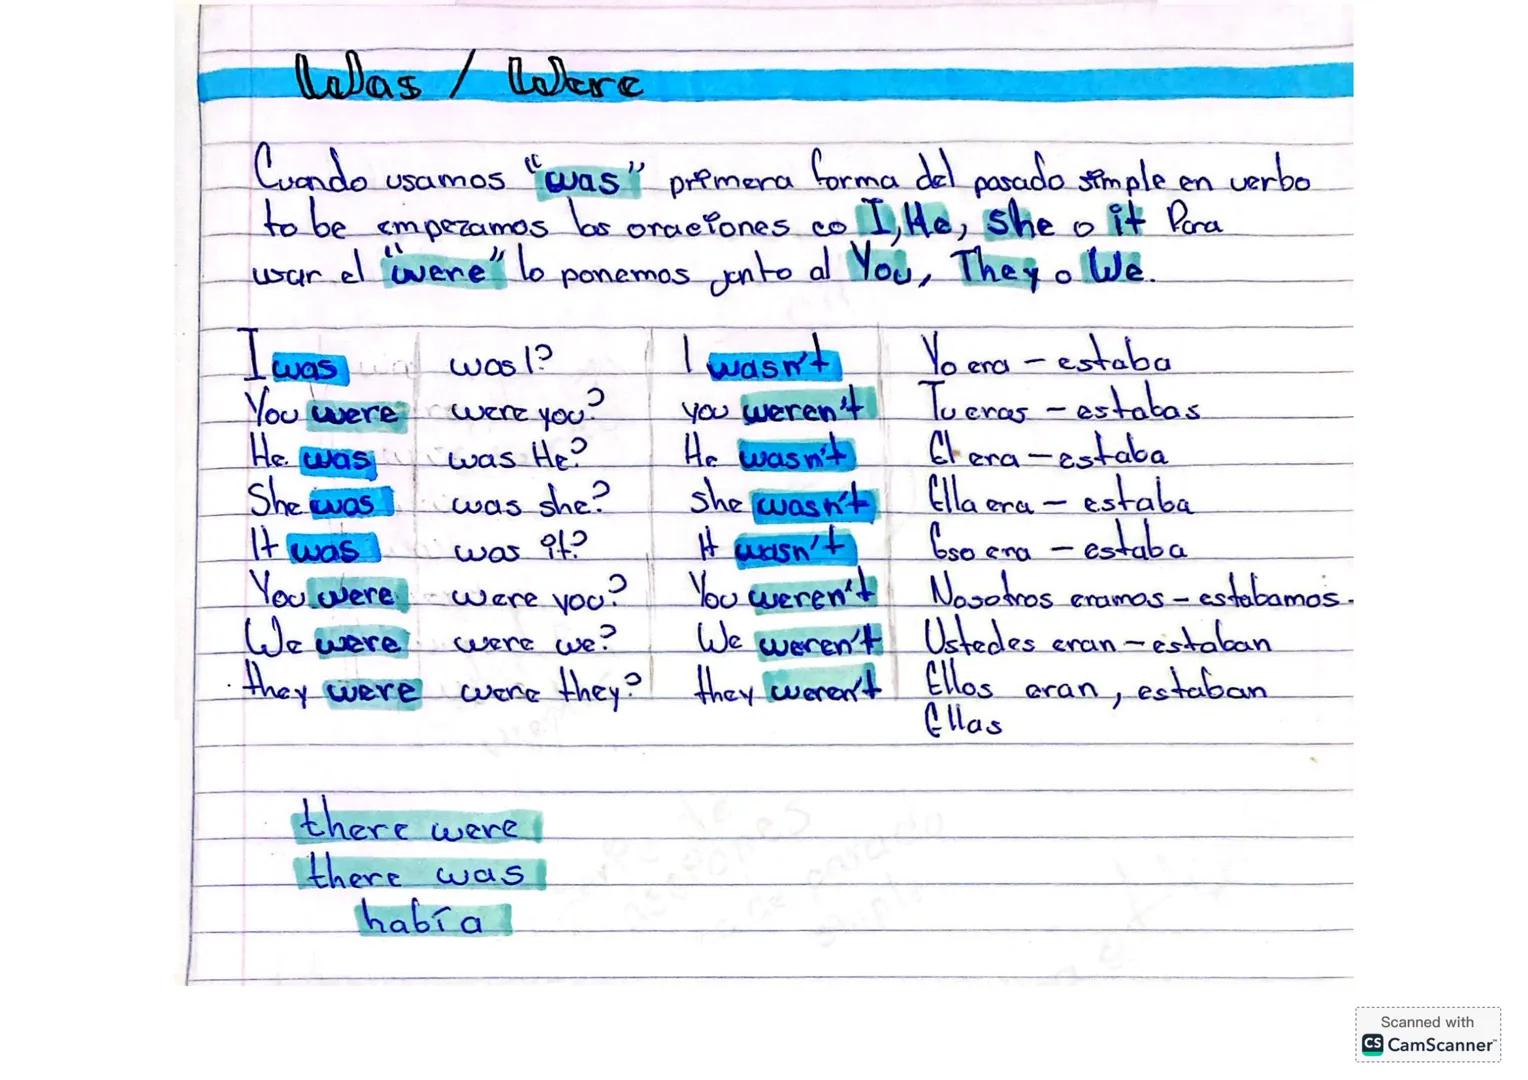 Was / Were
Cuando usamos "was" primera forma del pasado simple en verbo
to be empezamos las oraciones co I, He, She o it Para
usar el "were" lo ponemos junto al You, They o We.
I was was I? I wasn't Yo era - estaba
You were were you? you weren't Tu eras - estabas
He was was He? He wasn't El era - estaba
She was was she? she wasn't Ella era - estaba
It was was it? It wasn't Eso era - estaba
You were were you? You weren't Nosotros eramos - estabamos.
We were were we? We weren't Ustedes eran - estaban
they were were they? they weren't Ellos eran, estaban
Ellas
there were
there was
había
Scanned with
CS CamScanner